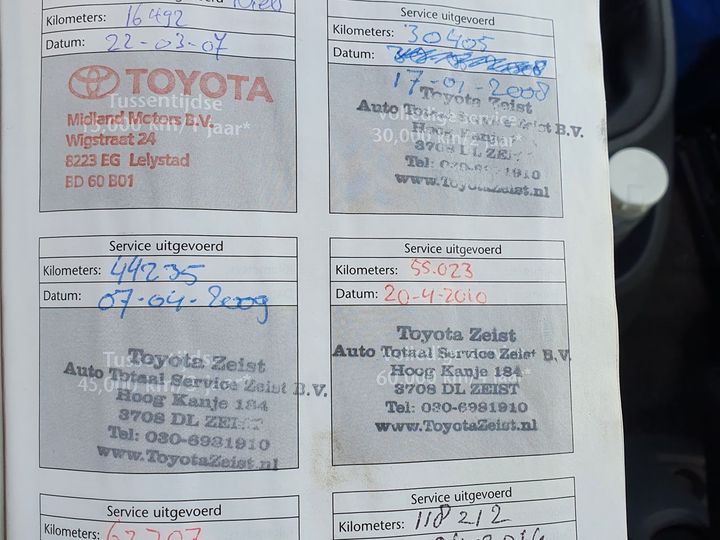 Service uitgevoerd
Kilometers: 16492
Datum: 22-03-07
TOYOTA
Tussentijdse
15,000 km/1 jaar*
Midland Motors B.V.
Wigstraat 24
8223 EG Lelystad
BD 60 B01
Service uitgevoerd
Kilometers: 30405
Datum:
17-01-2008
Toyota Zeist
Auto Totaal Service Zeist B.V.
Volledige service
30,000 km/2 jaar*
Hoog Kanje
3708 DL ZEIST
Tel: 030-6981910
www.ToyotaZeist.nl
Service uitgevoerd
Kilometers: 44235
Datum: 07-04-2009
Tussentijdse
45,000 km/
Toyota Zeist
Auto Totaal Service Zeist B.V.
Hoog Kanje 184
3708 DL ZEIST
Tel: 030-6981910
www.ToyotaZeist.nl
Service uitgevoerd
Kilometers: 55.023
Datum: 20-4-2010
Toyota Zeist
Auto Totaal Service Zeist B.V.
60,000 km/4 jaar*
Hoog Kanje 184
3708 DL ZEIST
Tel: 030-6981910
www.ToyotaZeist.nl
Service uitgevoerd
Kilometers: 62707
Service uitgevoerd
Kilometers: 118212